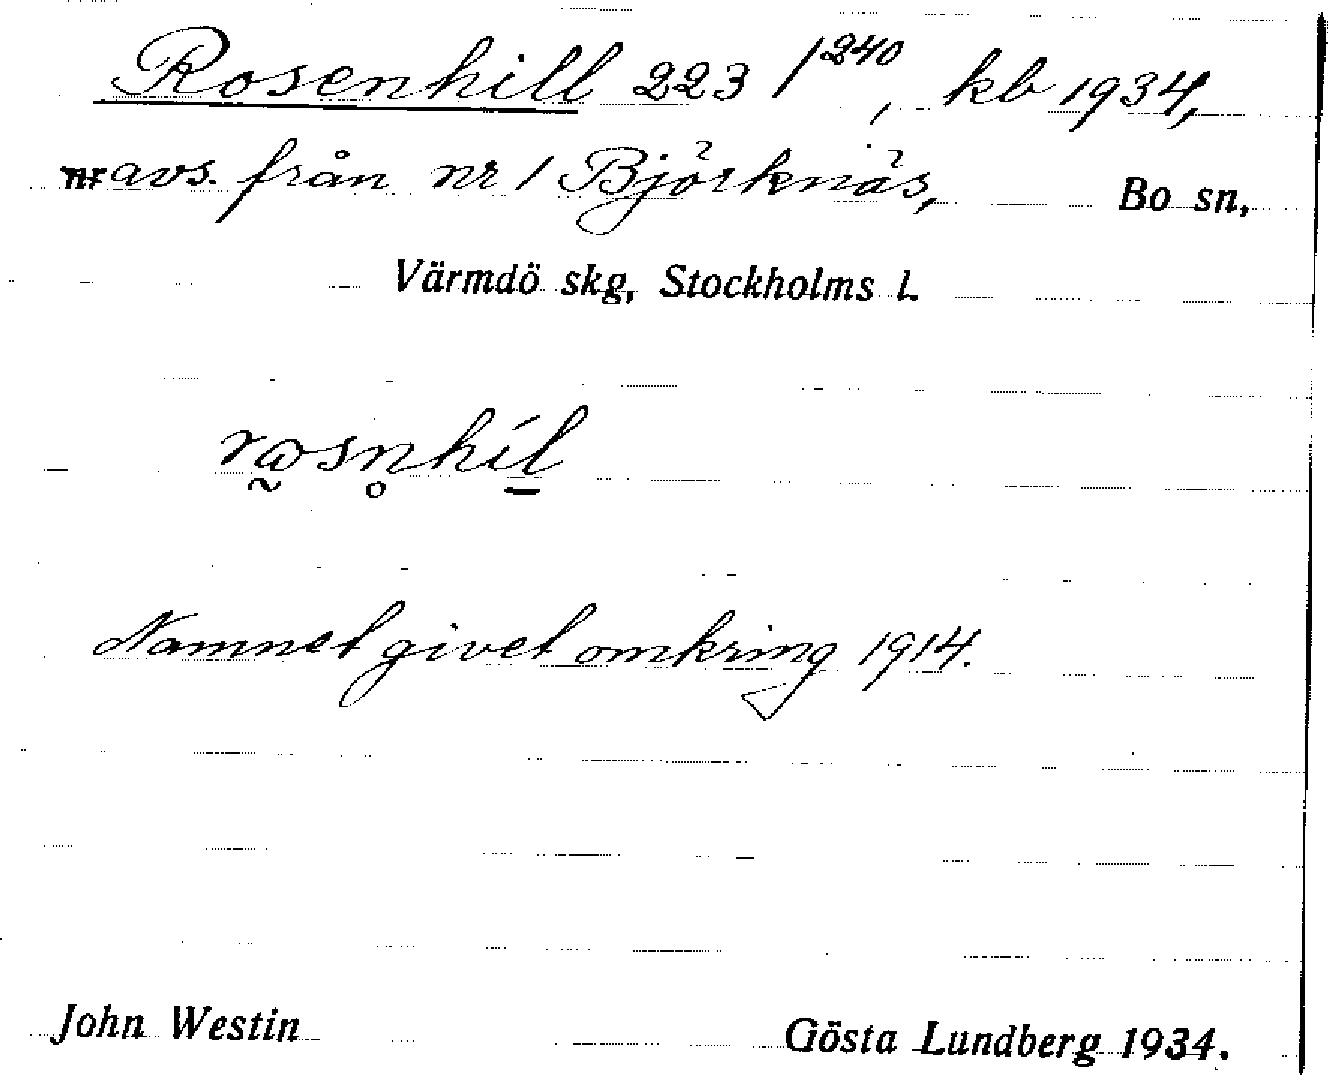 Rosenhill 223 /240, kb 1934,
avs. från nr 1 Björknäs, Bo sn,
Värmdö skg, Stockholms l.
Namnet givet omkring 1914.
John Westin Gösta Lundberg 1934.